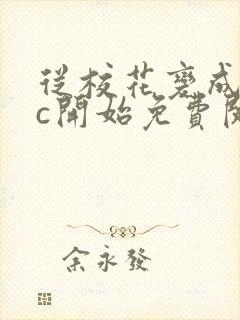 從校花褻成
c開始免費閱
余永發